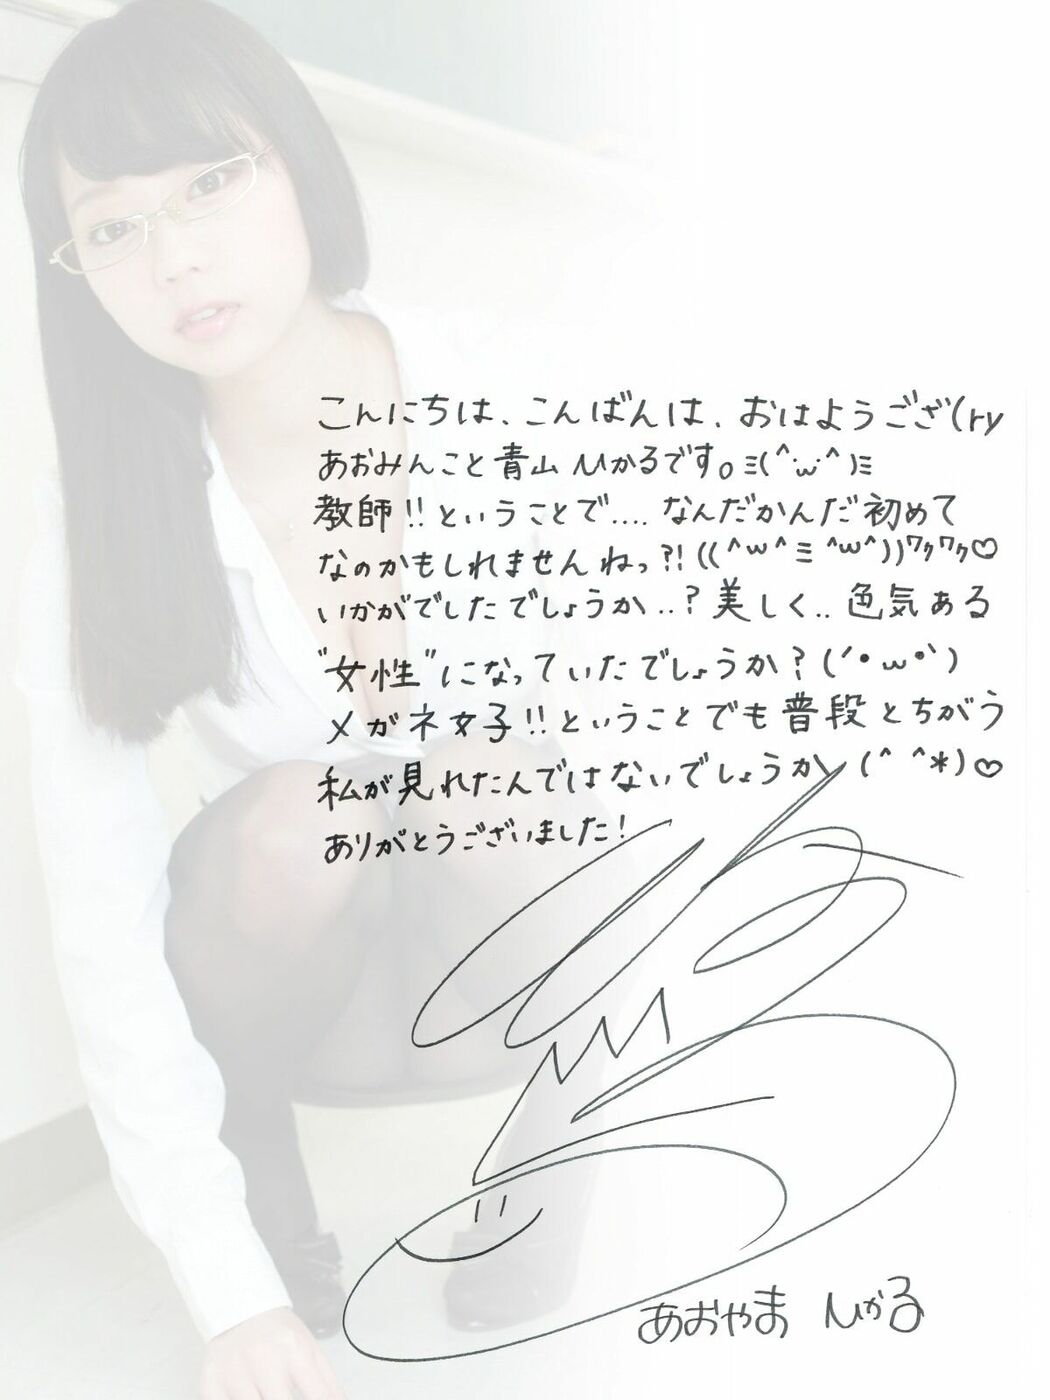 こんにちは、こんばんは、おはようござ(ry
あおみんこと青山ひかるです。ﾐ(^・ω・^)ﾐ
教師!!ということで....なんだかんだ初めて
なのかもしれませんねっ?!((^ω^ミ^ω^))ワクワク♡
いかがでしたでしょうか..?美しく..色気ある
"女性"になっていたでしょうか?(´•ω•`)
メガネ女子!!ということでも普段とちがう
私が見れたんではないでしょうか(^ ^*)♡
ありがとうございました!
あおやま ひかる